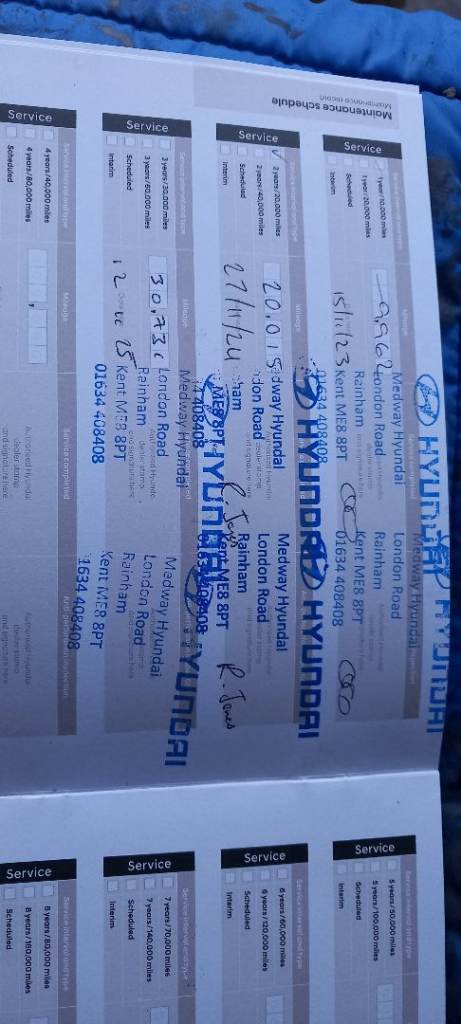 Maintenance schedule
Maintenance record
Service
1 year/10,000 miles
1 year/20,000 miles
Scheduled
Interim
Mileage
9962
15/11/23
HYUNDAI
Medway Hyundai
London Road
Rainham
Kent ME8 8PT
01634 408408
HYUNDAI
Medway Hyundai
London Road
Rainham
Kent ME8 8PT
01634 408408
Service
2 years/20,000 miles
2 years/40,000 miles
Scheduled
Interim
Mileage
20,015
27/11/24
HYUNDAI
Medway Hyundai
London Road
ME8 8PT
408408
R. Jones
HYUNDAI
Medway Hyundai
London Road
Rainham
Kent ME8 8PT
01634 408408
R. Jones
Service
3 years/30,000 miles
3 years/60,000 miles
Scheduled
Interim
Mileage
12
25
HYUNDAI
Medway Hyundai
London Road
Rainham
Kent ME8 8PT
01634 408408
HYUNDAI
Medway Hyundai
London Road
Rainham
Kent ME8 8PT
1634 408408
Service
Service interval and type
4 years/40,000 miles
4 years/80,000 miles
Scheduled
Mileage
Service completed
Authorised Hyundai
dealer stamp
and signature here
Anti-perforation inspection
Authorised Hyundai
dealer stamp
and signature here
Service
Service interval and type
5 years/50,000 miles
5 years/100,000 miles
Scheduled
Interim
Service
Service interval and type
6 years/60,000 miles
6 years/120,000 miles
Scheduled
Interim
Service
Service interval and type
7 years/70,000 miles
7 years/140,000 miles
Scheduled
Interim
Service
Service interval and type
8 years/80,000 miles
8 years/160,000 miles
Scheduled